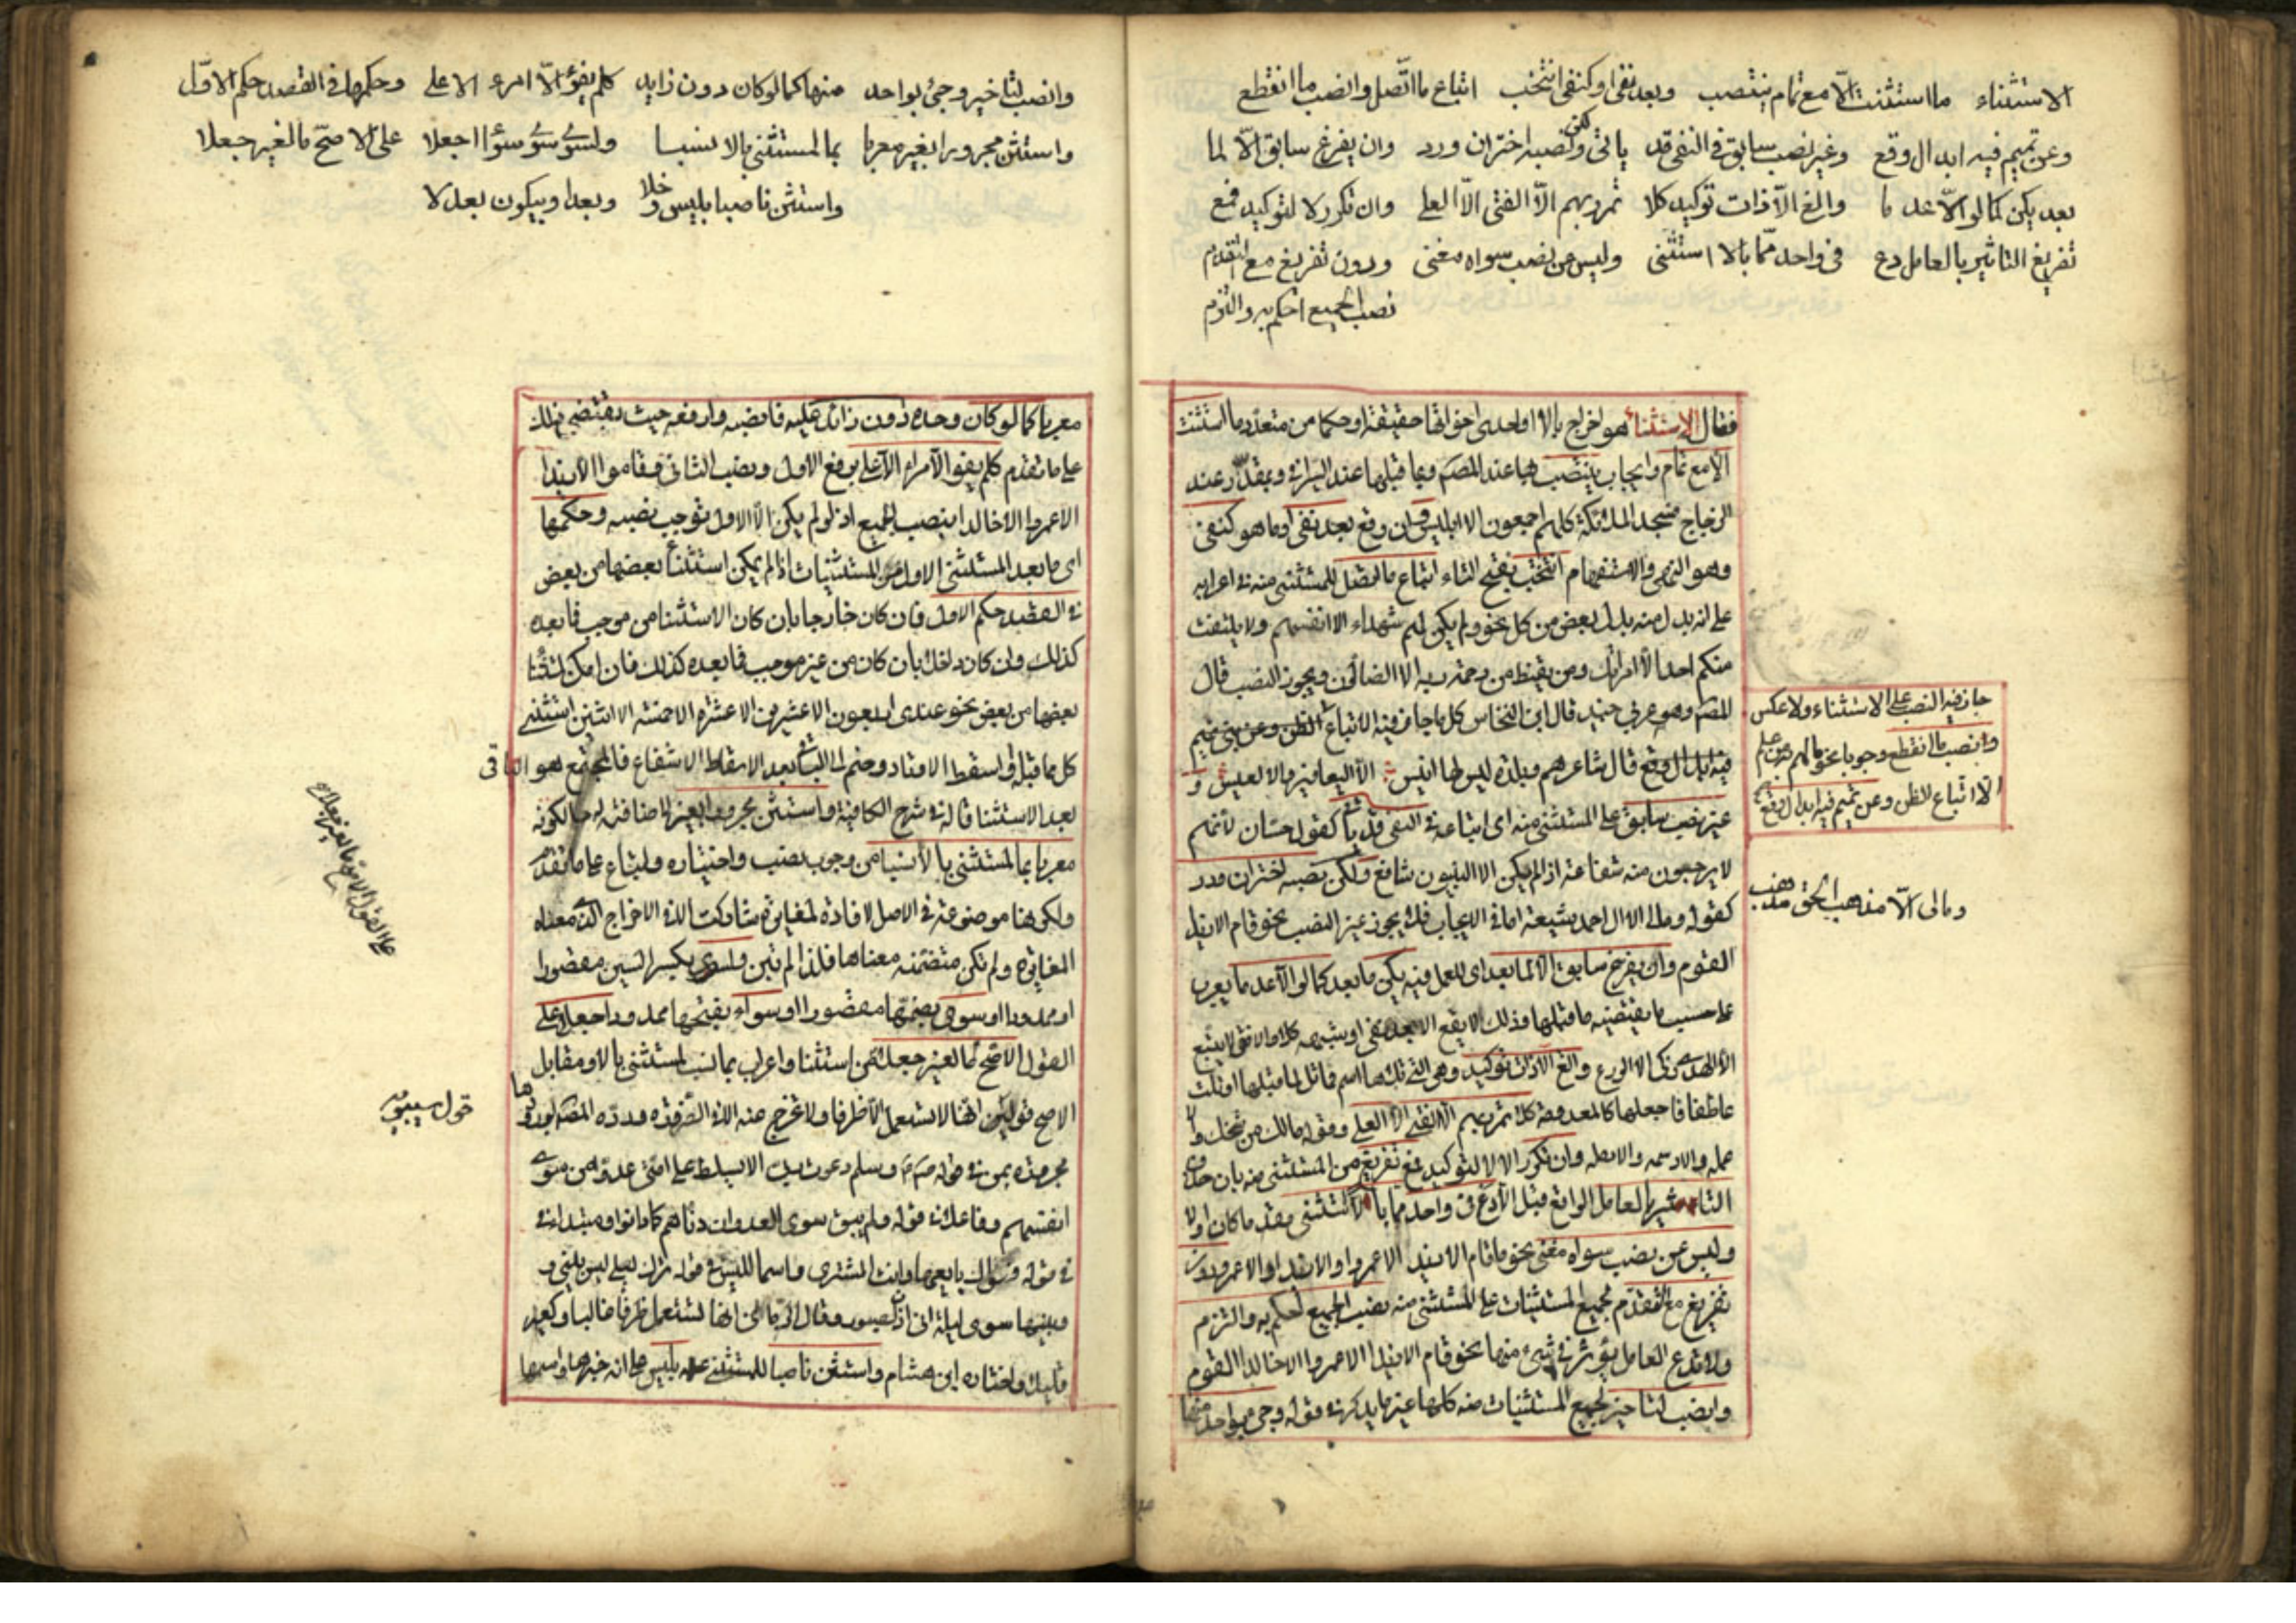 الاستثناء ما استثنت الّا مع تمام ينتصب وبعد نفى او كنفى انتخب اتباع ما اتّصل وانصب ما انقطع
وعن تميم فيه ابدال وقع وغير نصب سابق فى النفى قد ياتى ولكن نصبه اختر ان ورد وان يفرغ سابق الّا لما
بعد يكن كما لو الّا عدما والغ الّا ذات توكيد كلا تمرر بهم الّا الفتى الّا العلى وان تكرر لا لتوكيد فمع
تفريغ التاثير بالعامل دع فى واحد ممّا بالا استثنى وليس عن نصب سواه مغنى ودون تفريغ مع التقدم
نصب الجميع احكم به والتزم
فقال الاستثناء هو اخراج بالا او احدى اخواتها حقيقة او حكما من متعدد ما استثنت
الّا مع تمام وايجاب ينتصب بها عند المصـ وبما قبلها عند السيرافى وبمقدّر عند
الزجاج فسجد الملائكة كلهم اجمعون الا ابليس وان وقع بعد نفى او ما هو كنفى
وهو النهى والاستفهام انتخب بفتح التاء اتباع ما اتصل للمستثنى منه فى اعرابه
على انه بدل منه بدل بعض من كل نحو ولم يكن لهم شهداء الا انفسهم ولا يلتفت
منكم احد الّا امراتك ومن يقنط من رحمة ربه الا الضالون ويجوز النصب قال
المصـ وهو عربى جيد قال ابن النحاس كل ما جاز فيه الاتباع
جاز فيه النصب على الاستثناء ولا عكس
وانصب ما انقطع وجوبا نحو ما لهم به من علم
الّا اتباع الظن وعن تميم فيه ابدال وقع
فيه ابدال وقع قال شاعرهم وبلدة ليس لها انيس الّا اليعافير والا العيس و
غير نصب سابق على المستثنى منه اى اتباعه فى النفى قد ياتى كقول حسّان لانهم
لا يرجون منه شفاعة اذا لم يكن الا النبيون شافع ولكن نصبه اختر ان ورد
كقوله وما لى الا ال احمد شيعة اما فى الايجاب فلا يجوز غير النصب نحو قام الا زيدا
ومالى الّا مذهب الحق مذهب
القوم وان يفرغ سابق الّا لما بعد اى للعمل فيه يكن ما بعد كما لو الّا عدما يعرب
على حسب ما يقتضيه ما قبلها وذلك لا يقع الا بعد نفى او شبهه كلا
الّا الهدى وزكى الا الورع والغ الّا ذات توكيد وهى التى تلاها اسم مماثل لما قبلها او تلت
عاطفا فاجعلها كالمعدومة كلا تمرر بهم الّا الفتى الّا العلى وقوله مالك من شيخك الّا
عمله الا رسيمه والا رمله وان تكرر الا لا لتوكيد فمع تفريغ من المستثنى منه بان حذف
التاثير بالعامل الواقع قبل الّا دع فى واحد مما بالّا استثنى مقدما كان او لا
وليس عن نصب سواه مغنى نحو ما قام الا زيد الا عمروا والا زيدا الا عمرو ودون
تفريغ مع التقدّم لجميع المستثنيات على المستثنى منه نصب الجميع احكم به والتزم
ولا تدع العامل يؤثر فى شئ منها نحو قام الا زيدا الا عمروا الا خالدا القوم
وانصب لتاخير لجميع المستثنيات منه كلها غير ما يذكر فى قوله وجئ بواحد منها
وانصب لتاخير وجئ بواحد منها كما لو كان دون زايد كلم يفوّا الّا امرء الا على وحكمها فى القصد حكم الاوّل
واستثن مجرورا بغير معربا بما لمستثنى بالا نسبا ولسوى سوى سوا اجعلا على الاصحّ ما لغير جعلا
واستثن ناصبا بليس وخلا وبعدا وبيكون بعد لا
معربا كما لو كان وحده دون زائد عليه فانصبه وارفعه حيث يقتضى ذلك
على ما تقدم كلم يفوا الّا امرء الّا على برفع الاول ونصب الثانى وقاموا الا زيدا
الا عمروا الا خالدا بنصب الجميع اذ لو لم يكن الّا الاول لوجب نصبه وحكمها
اى ما بعد المستثنى الاول من المستثنيات اذا لم يمكن استثنأ بعضها من بعض
فى القصد حكم الاول فان كان خارجا بان كان الاستثنا من موجب فما بعده
كذلك وان كان داخلا بان كان من غير موجب فما بعده كذلك فان امكن استثنأ
بعضها من بعض نحو عندى اربعون الا عشرين الا عشرة الا خمسة الا اثنين استثنى
كل مما قبله او اسقط الاوتار وضم الباقى بعد الاسقاط الاشفاع فالمجتمع هو الباقى
بعد الاستثنا قاله فى شرح الكافية واستثن مجرورا بغير لاضافته له حال كونه
معربا بما لمستثنى بالّا نسبا من وجوب نصب واختياره واتباع على ما تقدّم
ولكنها موضوعة فى الاصل لافادة المغايرة شاركت الا فى الاخراج الذى معناه
المغايرة ولم تكن متضمنة معناها فلذا لم تبن ولسوى بكسر السين مقصورا
او ممدودا او سوى بضمّها مقصورا او سواء بفتحها ممدودا اجعلا على
القول الاصح ما لغير جعلا من استثنا واعراب بما نسب لمستثنى بالا ومقابل
على القول الاصح ما لغير جعلا
الاصح قول سيبويه انها لا تستعمل الّا ظرفا ولا تخرج عنه الا فى الضرورة وردّه المصـ بورودها
قول سيبويه
مجرورة بمن فى قوله صـ وسلم دعوت ربى الا يسلط على امتى عدوّا من سوى
انفسهم وفاعلا فى قوله ولم يبق سوى العدوان دنّاهم كما دانوا ومبتدا فى
فى قوله فسواك بايعها وانت المشترى واسما لليس فى قوله اترك ليلى ليس بينى و
وبينها سوى ليلة انى اذا لصبور وقال الرمانى انها تستعمل ظرفا غالبا وكغير
قليلا واختاره ابن هشام واستثن ناصبا للمستثنى بليس على انه خبرها واسمها